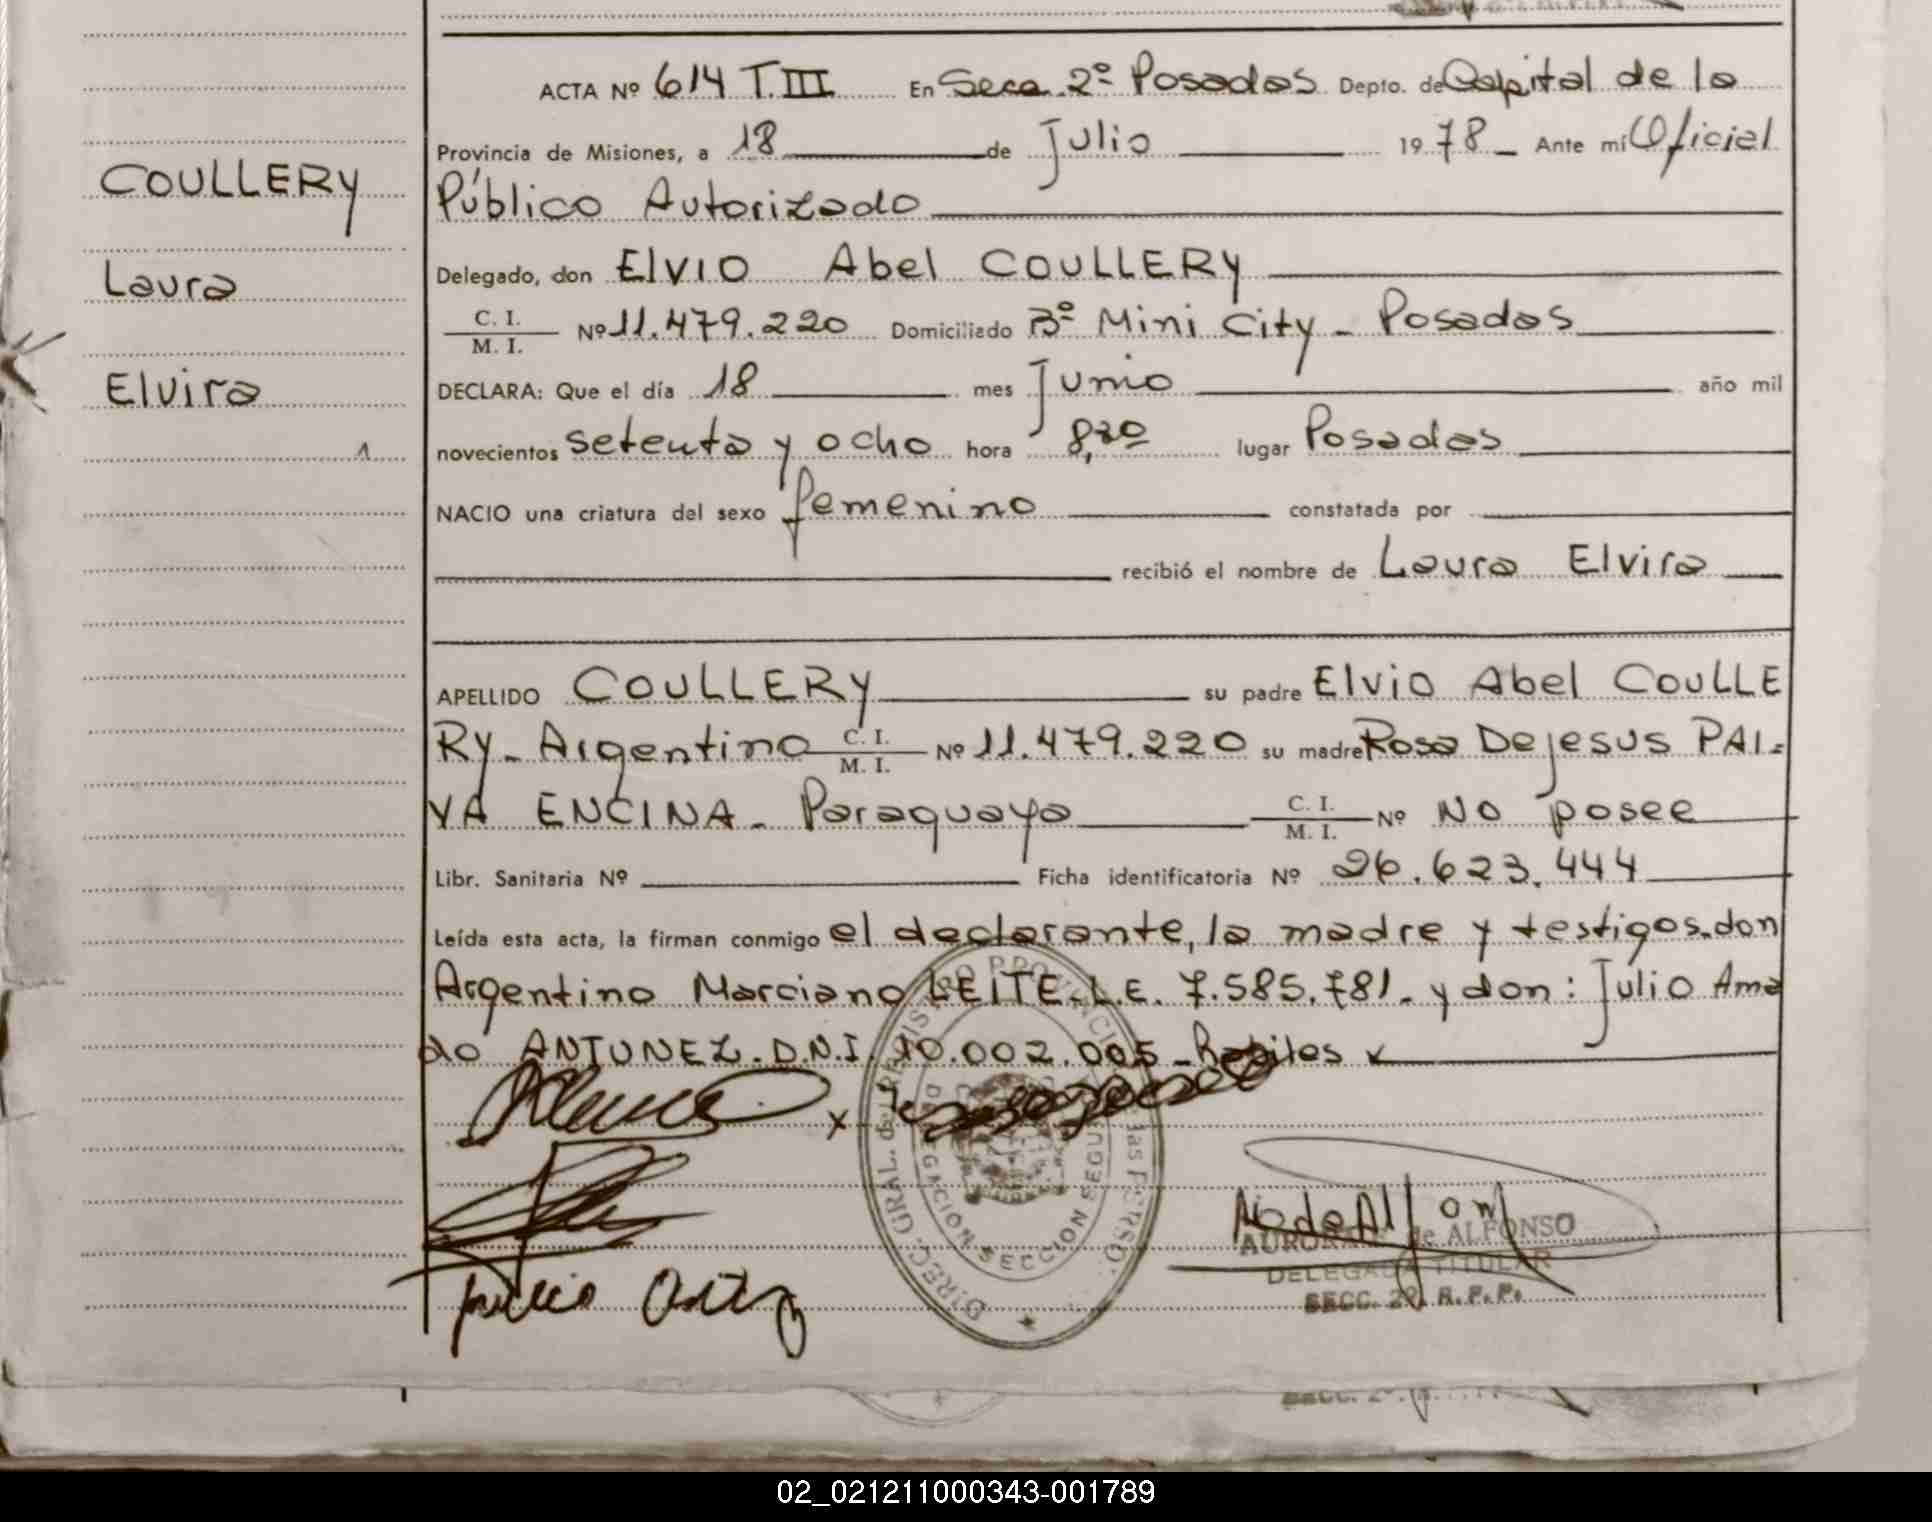 ACTA Nº 614 T. III En Secc. 2º Posadas Depto. de Capital de la
Provincia de Misiones, a 18 de Julio 1978 Ante mí Oficial
Público Autorizado
Delegado, don Elvio Abel COULLERY
C. I.
M. I. Nº 11.479.220 Domiciliado Bº Mini City - Posadas
DECLARA: Que el día 18 mes Junio año mil
novecientos setenta y ocho hora lugar Posadas
NACIO una criatura del sexo femenino constatada por
recibió el nombre de Laura Elvira
APELLIDO COULLERY su padre Elvio Abel COULLE
RY - Argentino C. I.
M. I. Nº 11.479.220 su madre Rosa Dejesus PAI-
VA ENCINA - Paraguaya C. I.
M. I. Nº No posee
Libr. Sanitaria Nº Ficha identificatoria Nº 26.623.444
Leída esta acta, la firman conmigo el declarante, la madre y testigos. don
Argentino Marciano LEITE. L.E. 7.585.781. y don: Julio Ama
do ANTUNEZ. D.N.I. 10.002.005 - Habiles
COULLERY
Laura
Elvira
x
DIREC. GRAL. del REGISTRO PROVINCIAL de las PERSO.
DELEGACION SECCION SEGUNDA
AURORA de ALFONSO
DELEGADA TITULAR
SECC. 2ª. R. P. P.
SECC. 2ª.
02_021211000343-001789